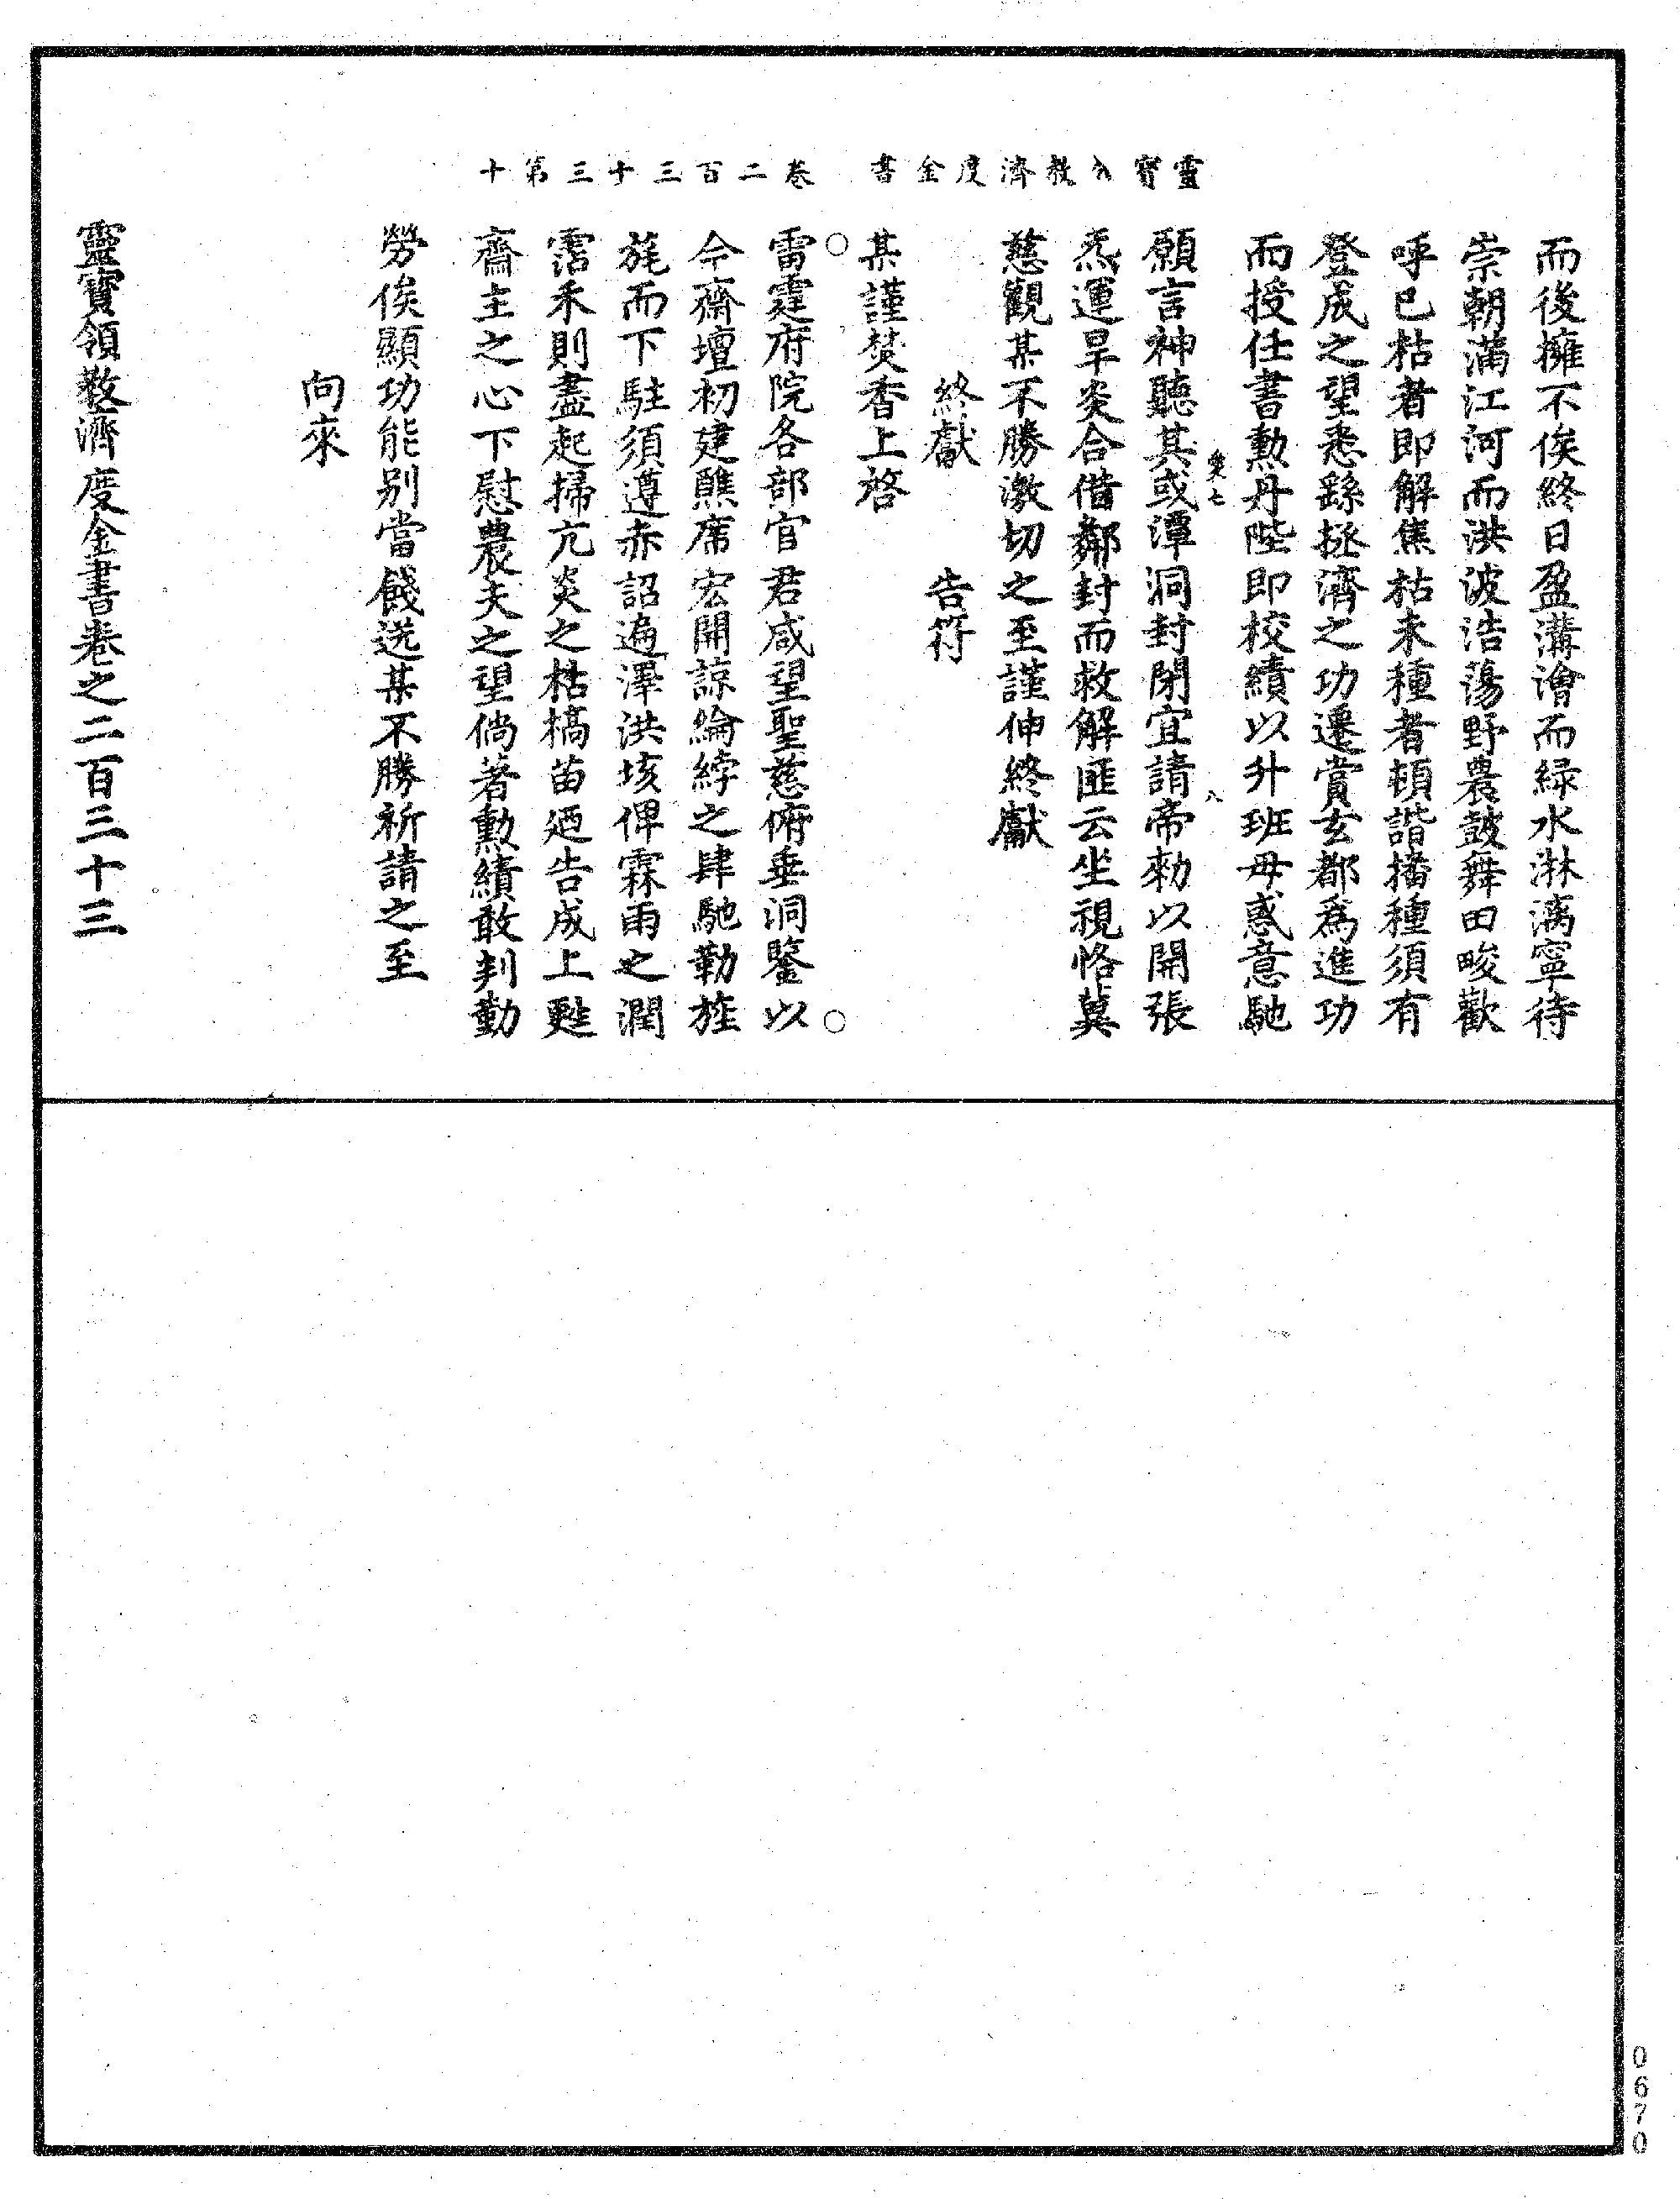 靈寶領教濟度金書 卷二百三十三第十
而後擁不俟終日盈溝澮而綠水淋漓寧待
崇朝滿江河而洪波浩蕩野農鼓舞田畯歡
呼已枯者即解焦枯未種者頓諧播種須有
登成之望悉繇拯濟之功遷賞玄都爲進功
而授任書勲丹陛即校績以升班毋惑意馳
願言神聽其或潭洞封閉宜請帝勑以開張
炁運旱炎合借鄰封而救解匪云坐視恪冀
慈觀某不勝激切之至謹伸終獻
終獻 告符
某謹焚香上啓
雷霆府院各部官君咸望聖慈俯垂洞鑒以
今齋壇初建醮席宏開諒綸綍之肆馳勒旌
旄而下駐須遵赤詔遍澤洪垓俾霖雨之潤
霑禾則盡起掃亢炎之枯槁苗廼告成上熨
齋主之心下慰農夫之望倘著勲績敢判勤
勞俟顯功能别當餞送某不勝祈請之至
向來
靈寶領教濟度金書卷之二百三十三
0670